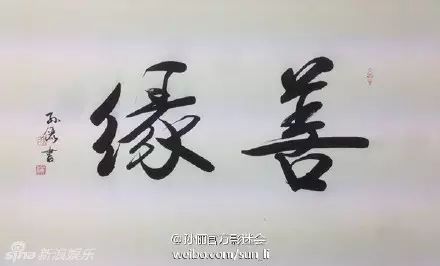 善缘
孙俪書
@孙俪官方影迷会
weibo.com/sun_li
sina 新浪娱乐